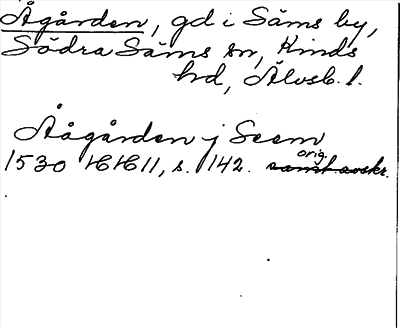 Ågården, gd i Säms by,
Södra Säms sn, Kinds
hrd, Älvsb. l.
Åågården j Seem
1530 HH 11, s. 142. orig. samt avskr.